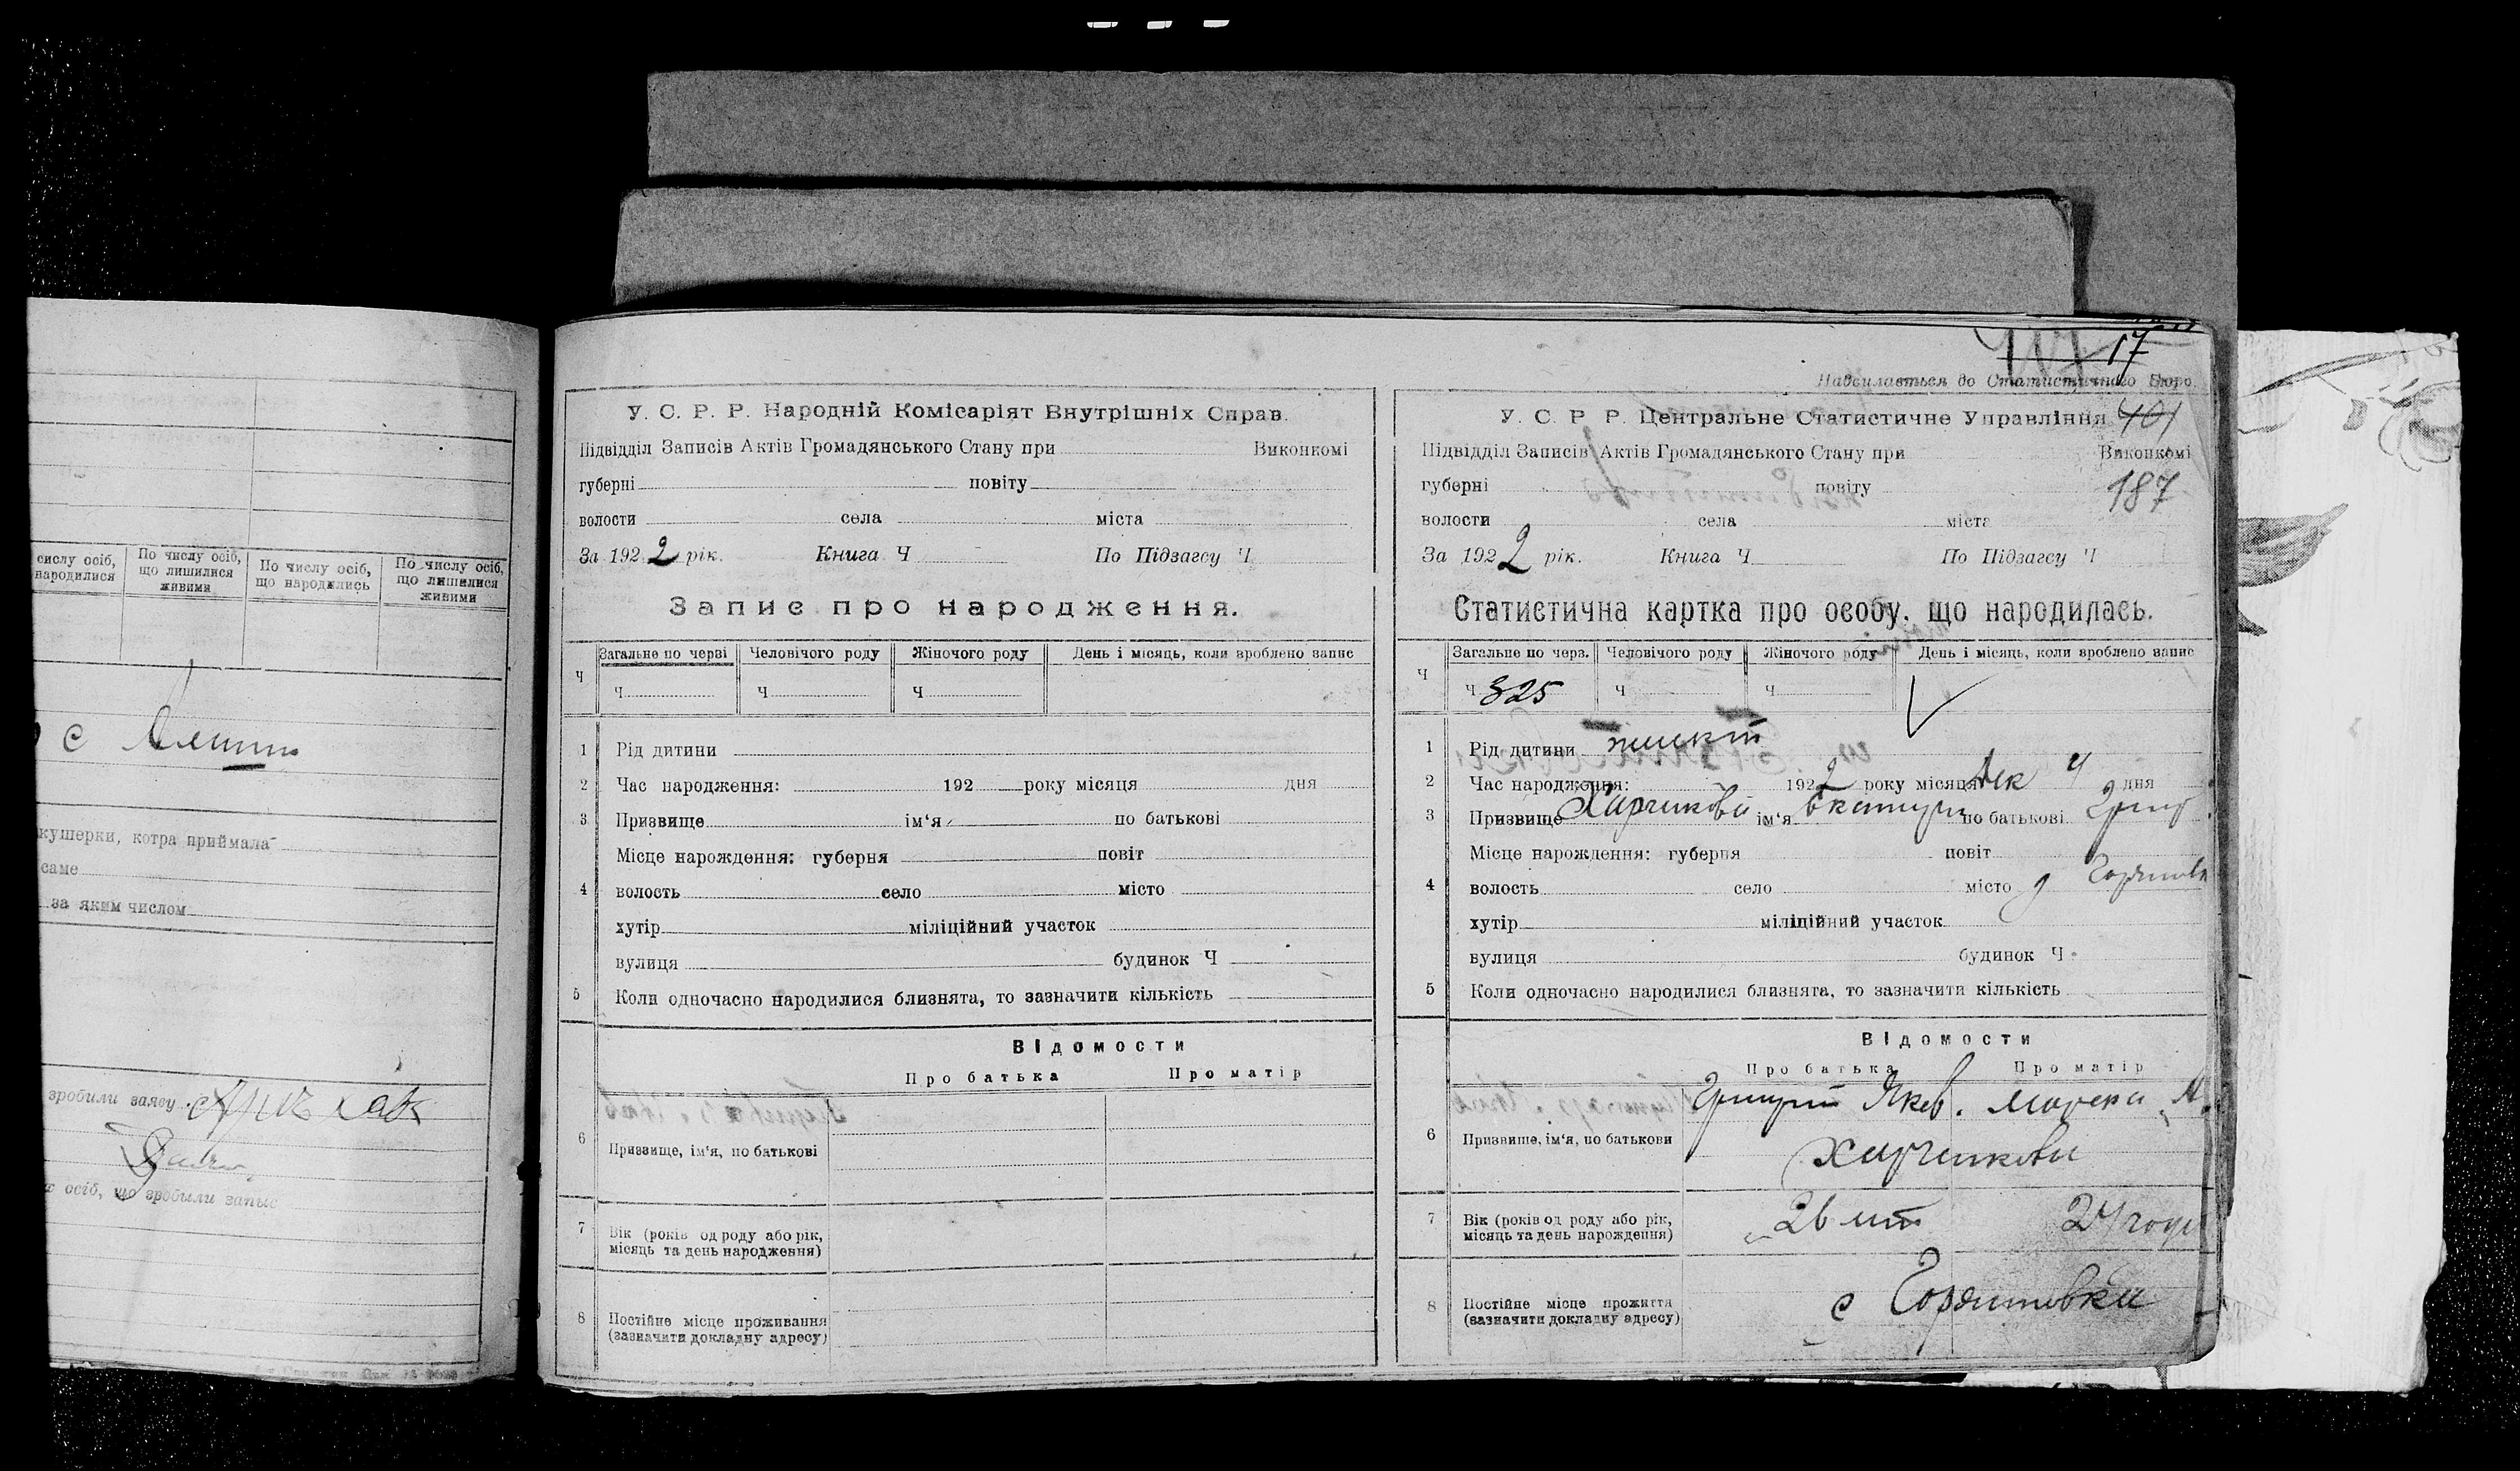 числу осіб, народилися
По числу осіб, що лишилися живими
По числу осіб, що народились
По числу осіб, що лишилися живими
с
кушерки, котра приймала
саме
за яким числом
зробили заяву
осіб, що зробыли запис
У. С. Р. Р. Народній Комісаріят Внутрішніх Справ.
Підвідділ Записів Актів Громадянського Стану при Виконкомі
губерні повіту
волости села міста
За 1922 рік. Книга Ч По Підзагсу Ч
Запис про народження.
Ч Загальне по черзі Человічого роду Жіночого роду День і місяць, коли зроблено запис
Ч Ч Ч
1 Рід дитини
2 Час народження: 192 року місяця дня
3 Призвище ім‘я по батькові
Місце нарождення: губерня повіт
4 волость село місто
хутір міліційний участок
вулиця будинок Ч
5 Коли одночасно народилися близнята, то зазначити кількість
Відомости
Про батька Про матір
6 Призвище, ім‘я, по батькові
7 Вік (років од роду або рік, місяць та день народження)
8 Постійне місце проживання (зазначити докладну адресу)
17
Надсилається до Статистичного Бюро.
У. С. Р. Р. Центральне Статистичне Управління 401
Підвідділ Записів Актів Громадянського Стану при Виконкомі
губерні повіту 187
волости села міста
За 1922 рік. Книга Ч По Підзагсу Ч
Статистична картка про особу, що народилась.
Ч Загальне по черз. Человічого роду Жіночого роду День і місяць, коли зроблено запис
Ч 325 Ч Ч
1 Рід дитини
2 Час народження: 1922 року місяця Дек 4 дня
3 Призвище Харчикова ім‘я Екатери по батькові Григ
Місце нарождення: губерня повіт
4 волость село місто
хутір міліційний участок
вулиця будинок Ч
5 Коли одночасно народилися близнята, то зазначити кількість
Відомости
Про батька Про матір
Григорий Яков.
6 Призвище, ім‘я, по батькови
Харчикови
7 Вік (років од роду або рік, місяць та день нарождення) 26 лет
8 Постійне місце прожиття (зазначити докладну адресу) с